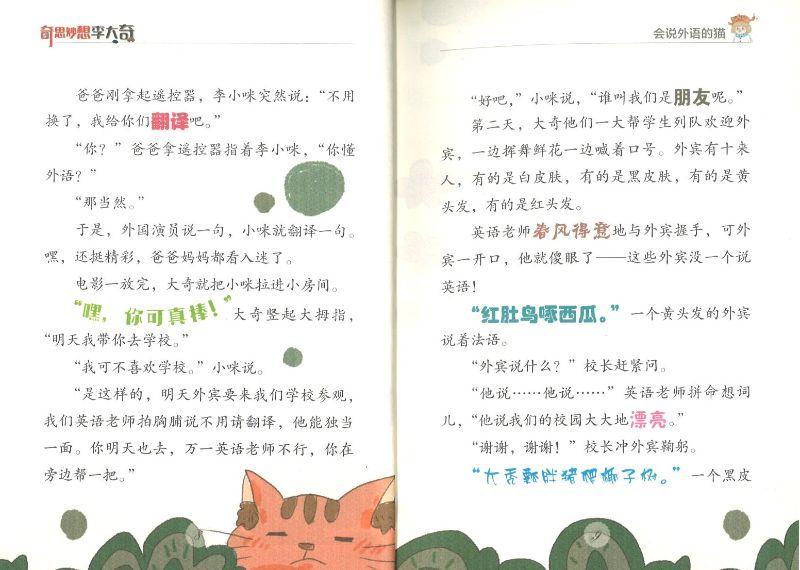 奇思妙想李大奇
爸爸刚拿起遥控器，李小咪突然说：“不用
换了，我给你们翻译吧。”
“你？”爸爸拿遥控器指着李小咪，“你懂
外语？”
“那当然。”
于是，外国演员说一句，小咪就翻译一句。
嘿，还挺精彩，爸爸妈妈都看入迷了。
电影一放完，大奇就把小咪拉进小房间。
“嘿，你可真棒！”大奇竖起大拇指，
“明天我带你去学校。”
“我可不喜欢学校。”小咪说。
“是这样的，明天外宾要来我们学校参观，
我们英语老师拍胸脯说不用请翻译，他能独当
一面。你明天也去，万一英语老师不行，你在
旁边帮一把。”
8
会说外语的猫
“好吧，”小咪说，“谁叫我们是朋友呢。”
第二天，大奇他们一大帮学生列队欢迎外
宾，一边挥舞鲜花一边喊着口号。外宾有十来
人，有的是白皮肤，有的是黑皮肤，有的是黄
头发，有的是红头发。
英语老师春风得意地与外宾握手，可外
宾一开口，他就傻眼了——这些外宾没一个说
英语！
“红肚鸟啄西瓜。”一个黄头发的外宾
说着法语。
“外宾说什么？”校长赶紧问。
“他说……他说……”英语老师拼命想词
儿，“他说我们的校园大大地漂亮。”
“谢谢，谢谢！”校长冲外宾鞠躬。
“大秃瓢胖猪爬椰子树。”一个黑皮
9